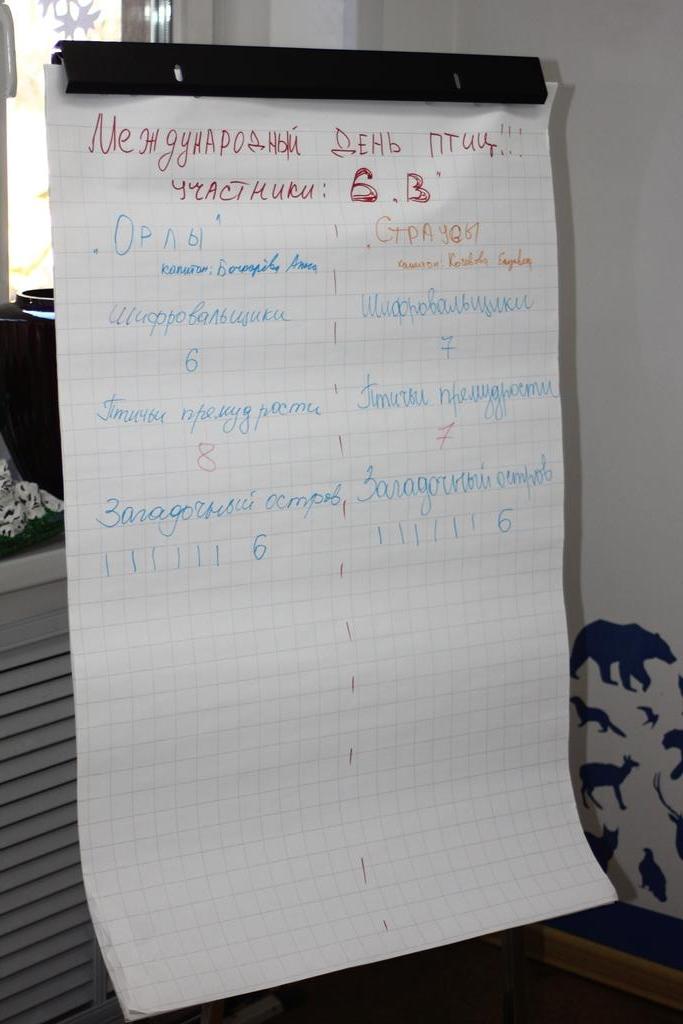 Международный день птиц!!!
участники: 6 „В"
„Орлы"
капитан: Анна
Шифровальщики
6
Птичьи премудрости
8
Загадочный остров
| | | | | | 6
„Страусы
капитан:
Шифровальщики
7
Птичьи премудрости
7
Загадочный остров
| | | | | | 6